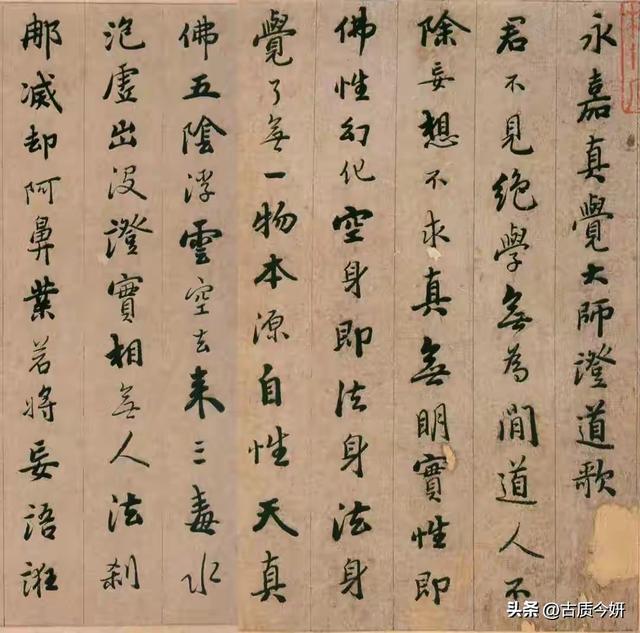 永嘉真覺大師證道歌
君不見絕學無為閒道人不
除妄想不求真無明實性即
佛性幻化空身即法身法身
覺了無一物本源自性天真
佛五陰浮雲空去來三毒水
泡虛出沒證實相無人法剎
那滅却阿鼻業若將妄語誑
头条 @古质今妍